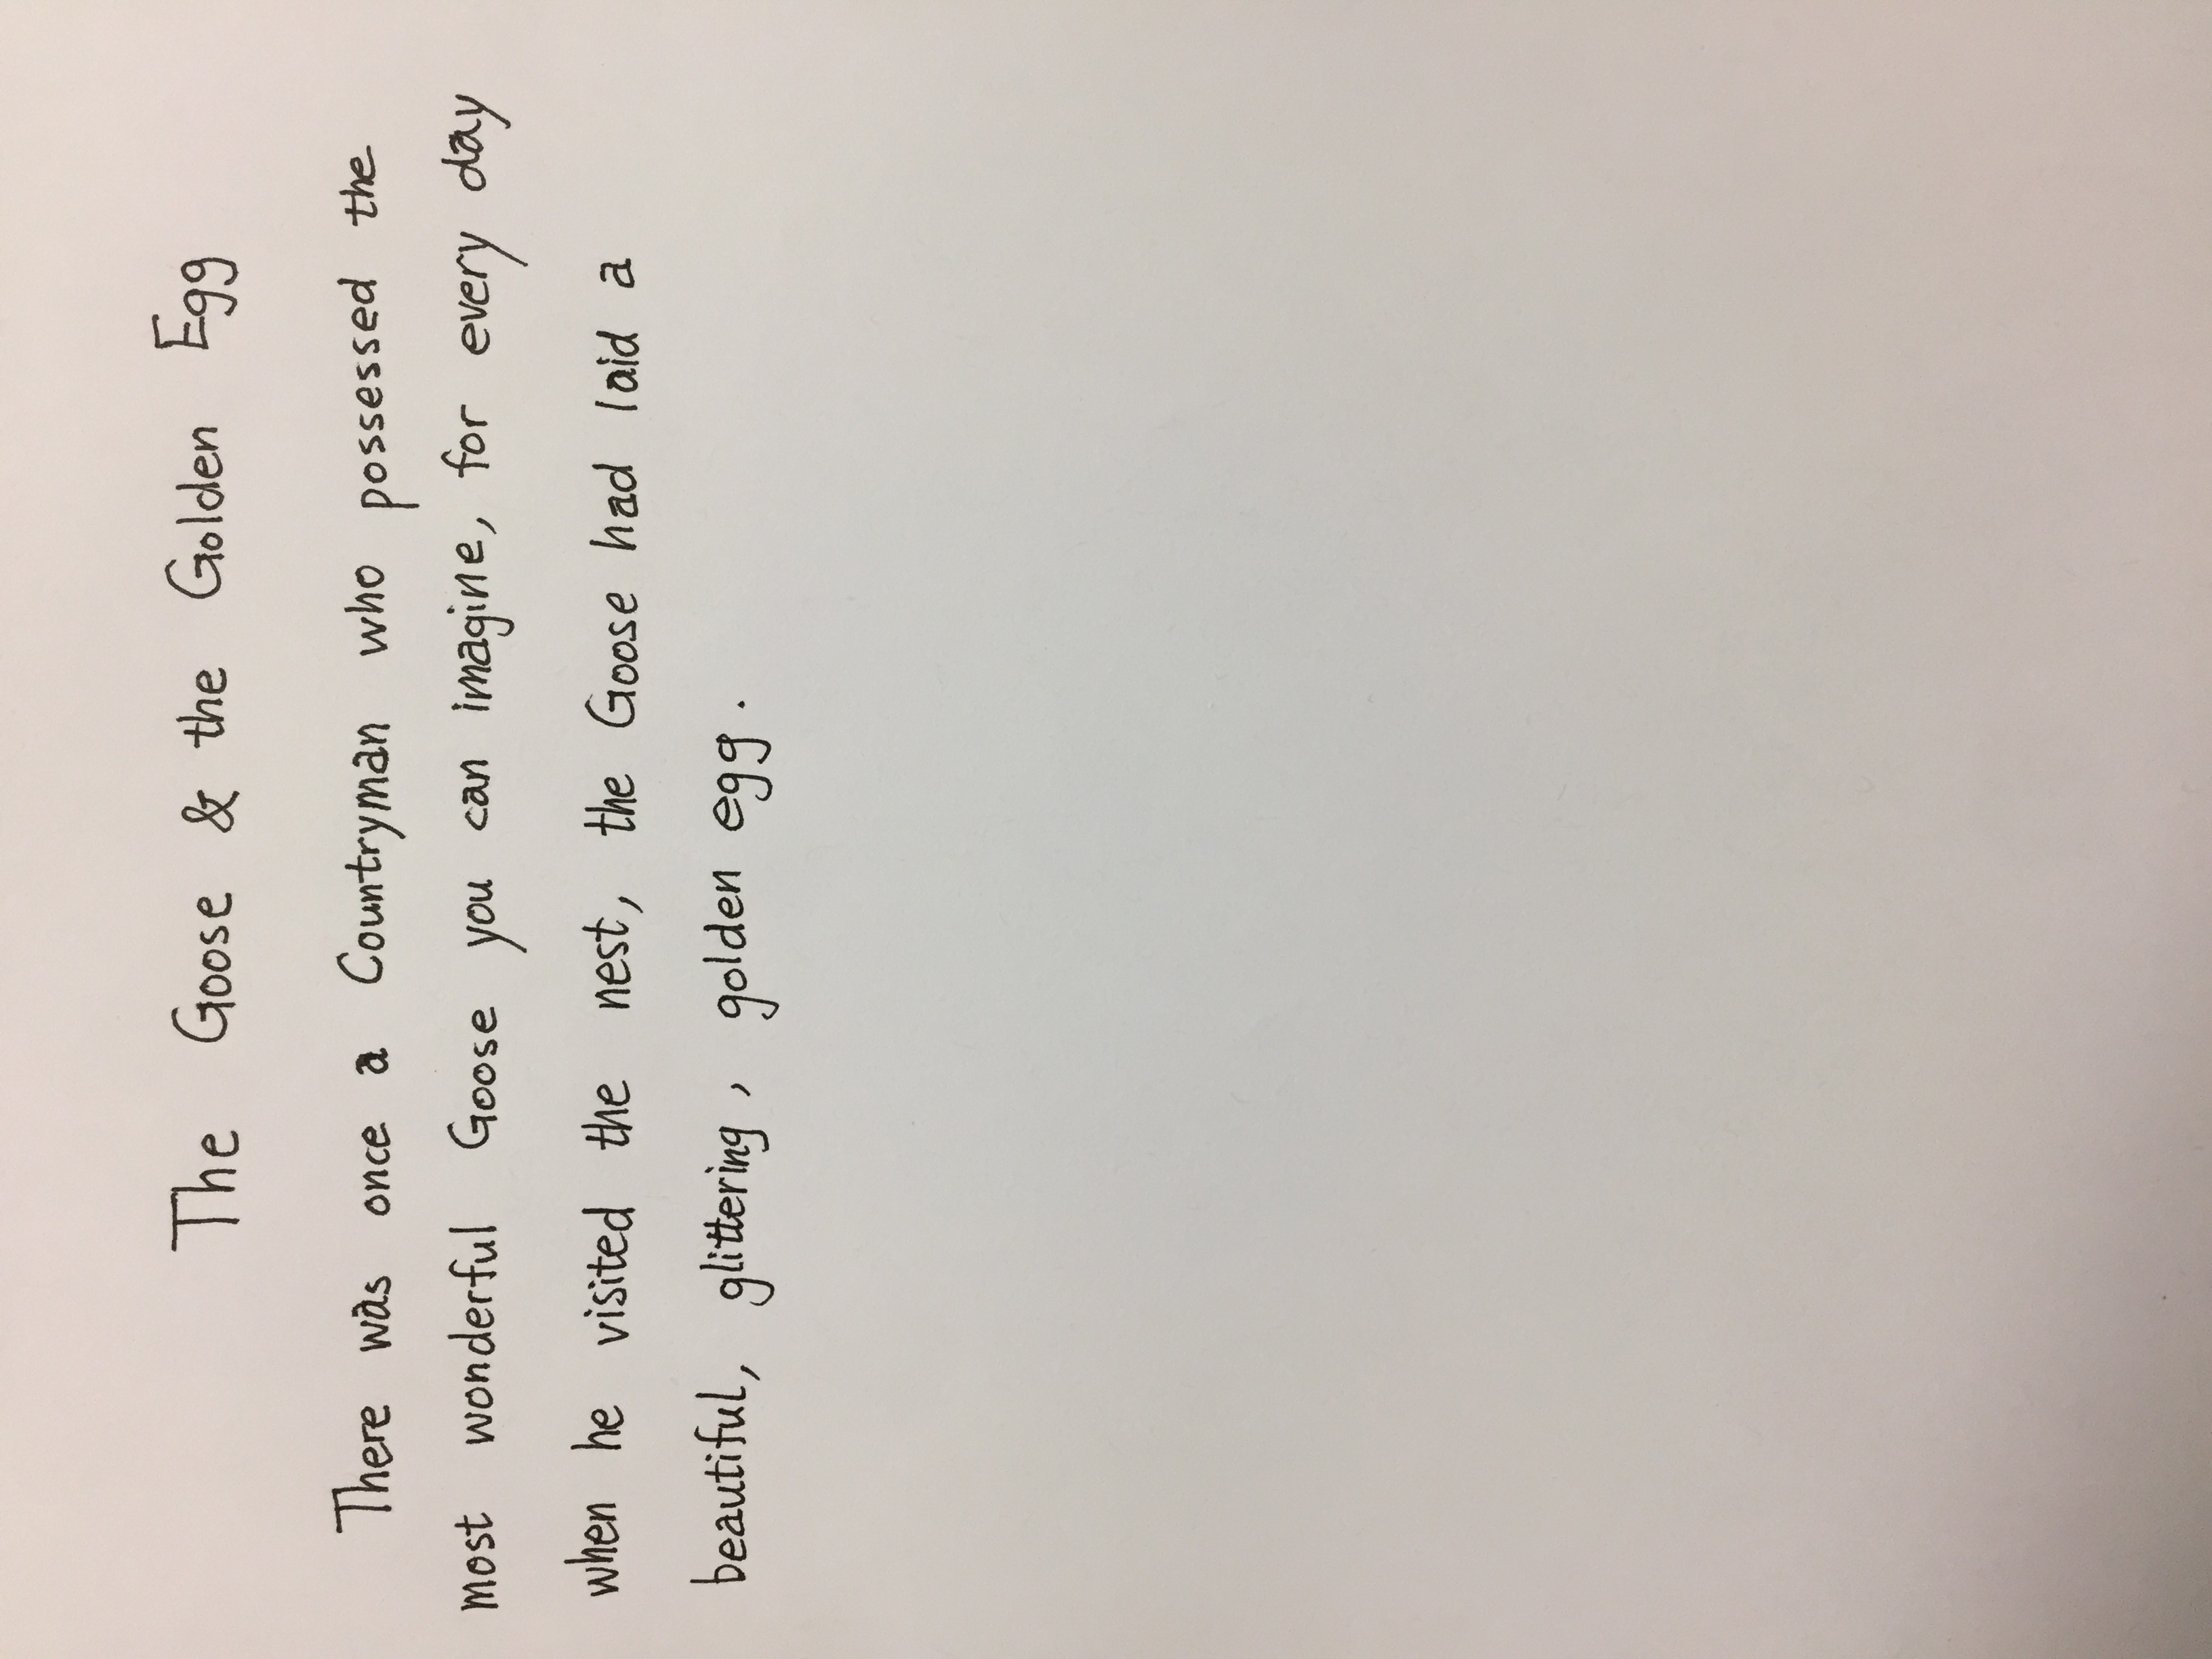 The Goose & the Golden Egg
There was once a Countryman who possessed the
most wonderful Goose you can imagine, for every day
when he visited the nest, the Goose had laid a
beautiful, glittering, golden egg.